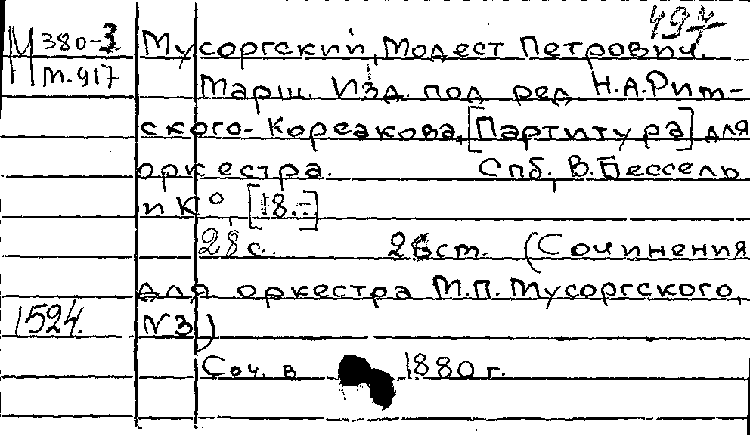 497
М 380-3 Мусоргский, Модест Петрович.
М-917 Марш. Изд. под ред Н.А.Рим-
ского-Корсакова, [Партитура] для
оркестра. Спб, В.Бессель
и К°, [18.-]
28 с. 26 ст. (Сочинения
для оркестра М.П.Мусоргского,
1524. №3)
Соч. в 1880 г.